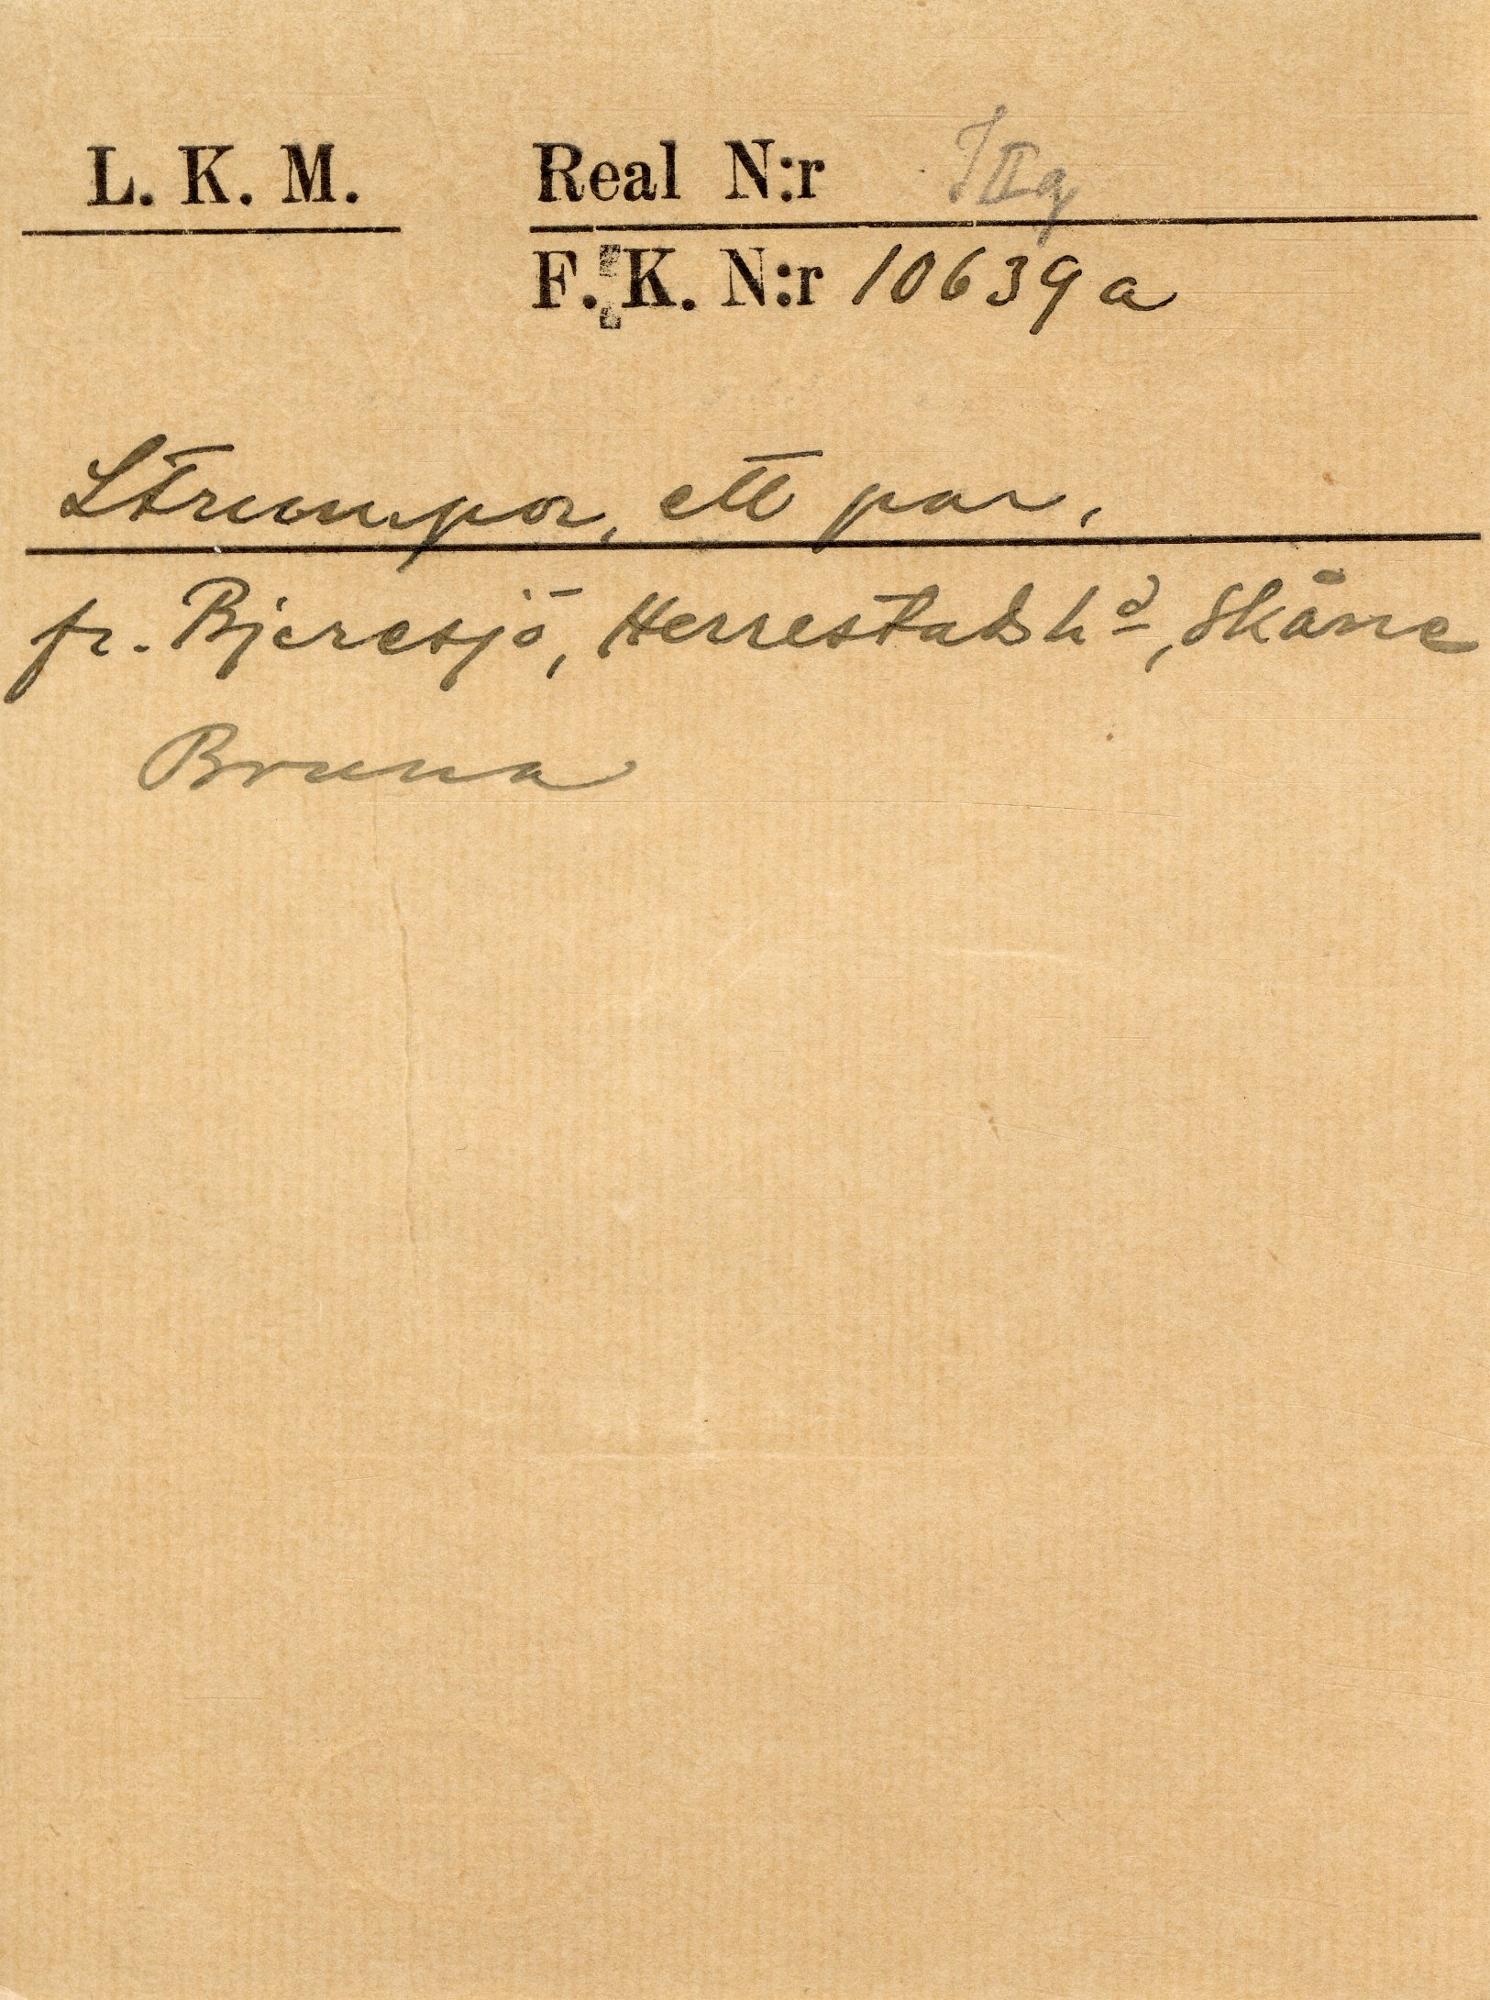 L. K. M. Real N:r III g
F. K. N:r 10639 a
Strumpor, ett par.
fr. Bjeresjö, Herrestads hd, Skåne
Bruna